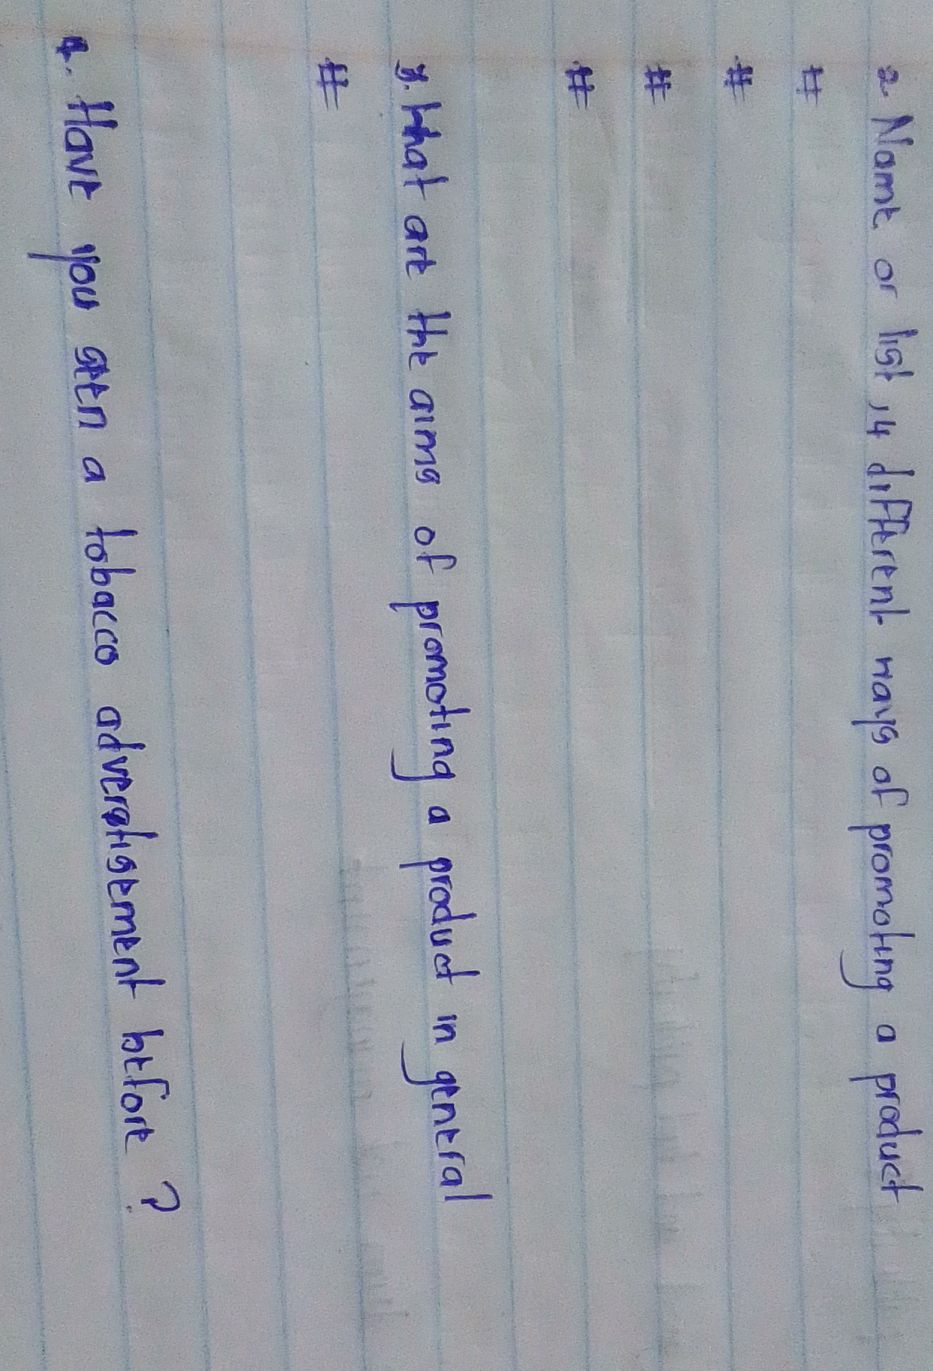 2. Name or list, 4 different ways of promoting a product
#
#
#
#
3. What are the aims of promoting a product in general
#
4. Have you seen a tobacco adverstisement before ?